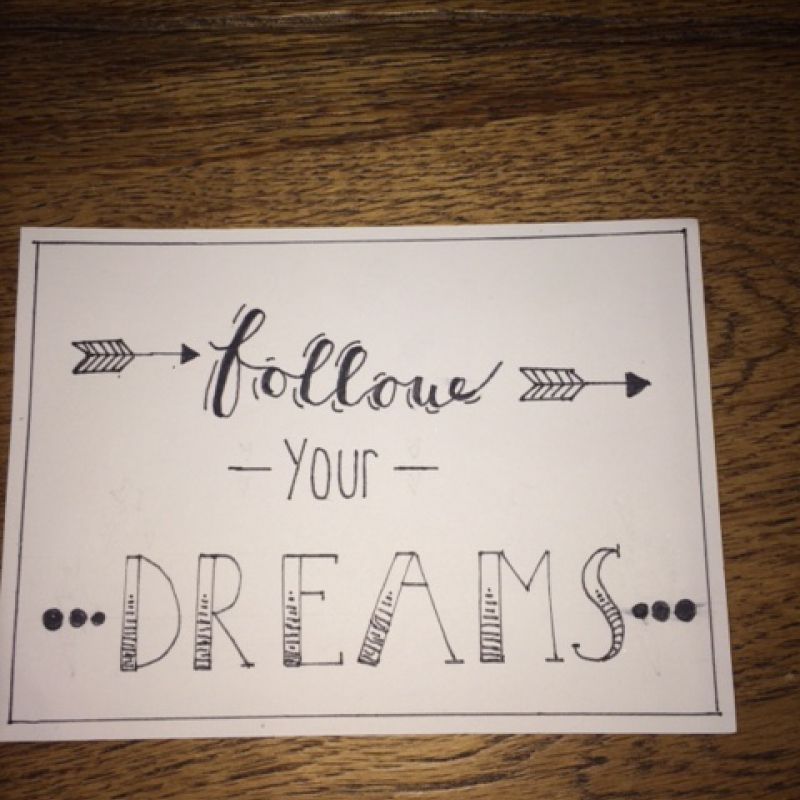 follow
your
DREAMS